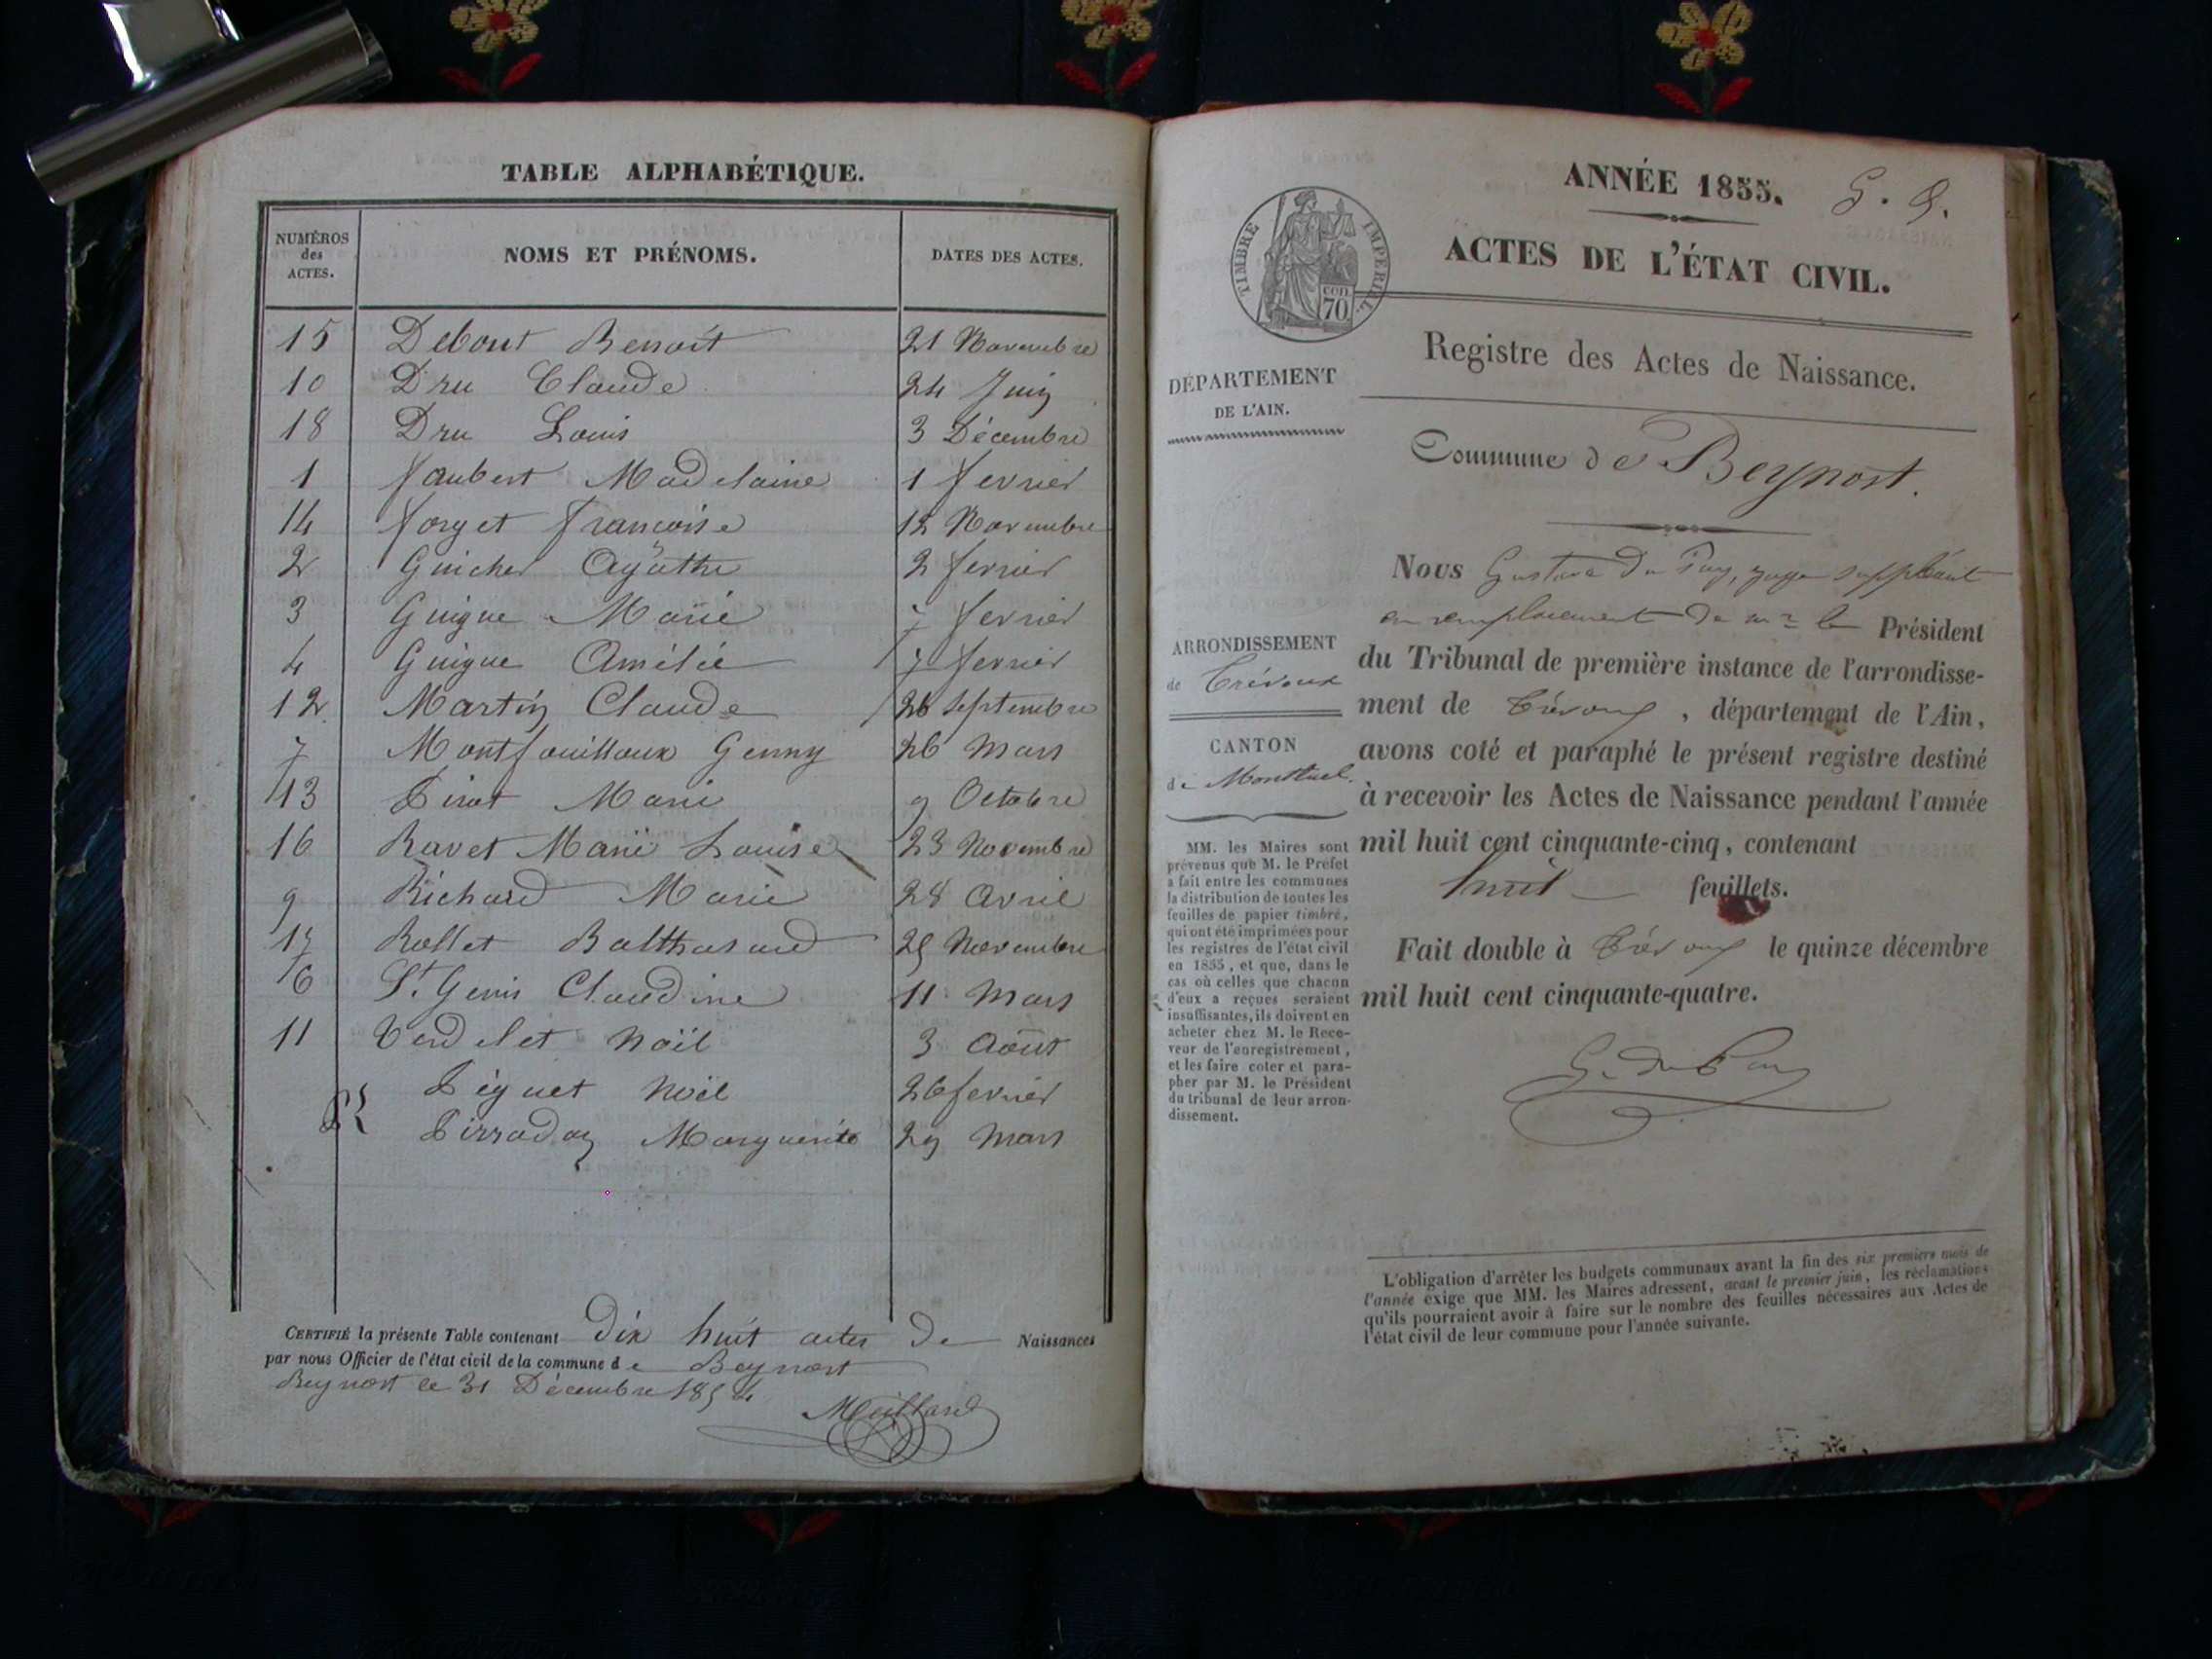 TABLE ALPHABÉTIQUE.
NUMÉROS des ACTES. NOMS ET PRÉNOMS. DATES DES ACTES.
15 Debout Benoit 21 Novembre
10 Dru Claude 24 Juin
18 Dru Louis 3 Décembre
1 faubert Madelaine 1 fevrier
14 forget francoise 12 Novembre
2 Guicher Agathe 2 fevrier
3 Guigue Marie 7 fevrier
4 Guigue Amélie 7 fevrier
12 Martin Claude 26 Septembre
7 Montfouilloux Genny 26 Mars
13 Pirat Marie 9 Octobre
16 Ravet Marie Louise 23 Novembre
9 Richard Marie 28 Avril
17 Rollet Balthasard 25 Novembre
6 St. Genis Claudine 11 Mars
11 Verdelet Noël 3 Août
Piquet Noël 26 fevrier
Pirraday Marguerite 29 Mars
CERTIFIÉ la présente Table contenant Dix huit actes De Naissances
par nous Officier de l'état civil de la commune de Beynost
Beynost le 31 Décembre 1854
ANNÉE 1855.
ACTES DE L'ÉTAT CIVIL.
TIMBRE IMPERIAL.
cen.
70
Registre des Actes de Naissance.
DÉPARTEMENT
DE L'AIN.
Commune de Beynost.
Nous Gustave Du Puy, juge suppléant
en remplacement de mr le Président
du Tribunal de première instance de l'arrondisse-
ment de Trévoux, département de l'Ain,
avons coté et paraphé le présent registre destiné
à recevoir les Actes de Naissance pendant l'année
mil huit cent cinquante-cinq, contenant
huit feuillets.
Fait double à Trévoux le quinze décembre
mil huit cent cinquante-quatre.
G. du Puy
ARRONDISSEMENT
de Trévoux
CANTON
de Montluel.
MM. les Maires sont
prévenus que M. le Préfet
a fait entre les communes
la distribution de toutes les
feuilles de papier timbré,
qui ont été imprimées pour
les registres de l'état civil
en 1855, et que, dans le
cas où celles que chacun
d'eux a reçues seraient
insuffisantes, ils doivent en
acheter chez M. le Rece-
veur de l'enregistrement,
et les faire coter et para-
pher par M. le Président
du tribunal de leur arron-
dissement.
L'obligation d'arrêter les budgets communaux avant la fin des six premiers mois de
l'année exige que MM. les Maires adressent, avant le premier juin, les réclamations
qu'ils pourraient avoir à faire sur le nombre des feuilles nécessaires aux Actes de
l'état civil de leur commune pour l'année suivante.